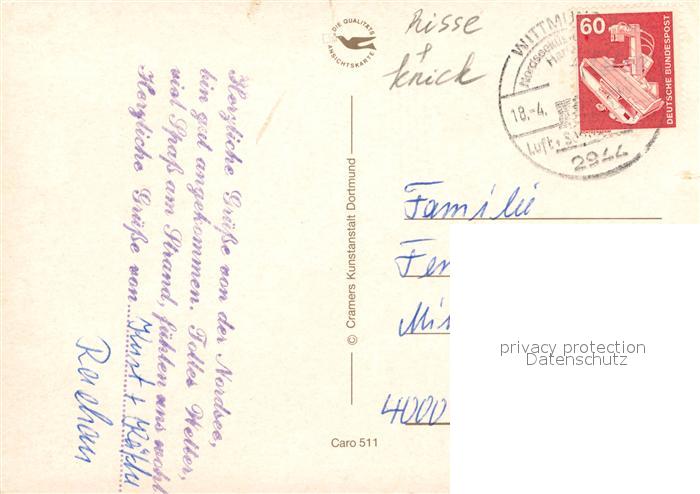 DIE QUALITÄTS
ANSICHTSKARTE
Risse
+
Knick
WITTMUND
Nordseeküste
Har
18.-4.
Luft
2944
60
DEUTSCHE BUNDESPOST
Herzliche Grüße von der Nordsee,
bin gut angekommen. Tolles Wetter,
viel Spaß am Strand, fühlen uns wohl
Herzliche Grüße von Kurt + Käthe
© Cramers Kunstanstalt Dortmund
Familie
Fer
4000
privacy protection
Datenschutz
Caro 511